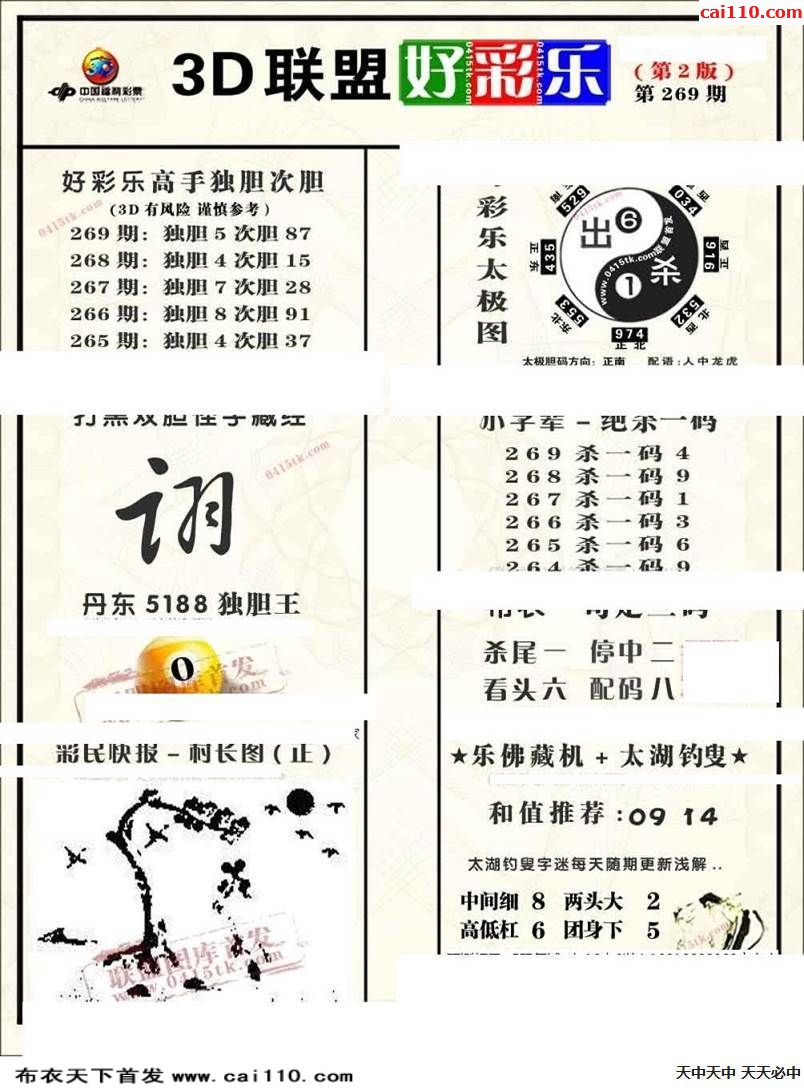 cai110.com
中国福利彩票
CHINA WELFARE LOTTERY
3D联盟好彩乐
(第2版)
第269期
好彩乐高手独胆次胆
(3D有风险 谨慎参考)
269期: 独胆5次胆87
268期: 独胆4次胆15
267期: 独胆7次胆28
266期: 独胆8次胆91
265期: 独胆4次胆37
0415tk.com
彩乐太极图
出6
杀1
www.0415tk.com联盟首发
529
034
正东 435
916 西正
东北 553
532 北西
974
正北
太极胆码方向: 正南 配语: 人中龙虎
打黑双胆怪字藏经
0415tk.com
诩
丹东5188独胆王
0
小字辈-绝杀一码
269杀一码4
268杀一码9
267杀一码1
266杀一码3
265杀一码6
264杀一码9
杀尾一 停中二
看头六 配码八
彩民快报-村长图(正)
联盟图库首发
www.0415tk.com
★乐佛藏机+太湖钓叟★
和值推荐:09 14
太湖钓叟字迷每天随期更新浅解..
中间细 8 两头大 2
高低杠 6 团身下 5
布衣天下首发 www.cai110.com
天中天中 天天必中